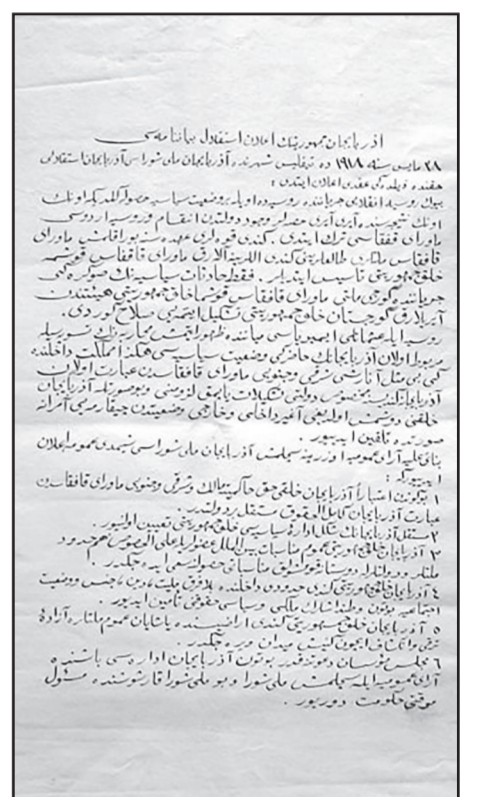 آذربایجان جمهوریتنك اعلان استقلال بیاننامه‌سی
۲۸ مایس سنه ۱۹۱۸ ده تیفلیس شهرنده آذربایجان ملی شوراسی آذربایجان استقلالی
حقنده عقدی اعلان ایتدی :
بیوك روسیه انقلابی جریاننده روسیه‌ده اویله بر وضعیت سیاسیه حصوله كلدی كه اونك
نتیجه‌سنده آیری آیری حصه‌لر وجود دولتدن انقسام و روسیه اردوسی
ماورای قفقاسی ترك ایتدی . كندی قوه‌لری عهده‌سنه بوراقلمش ماورای
قافقاس ملتلری طالعلرینی كندی اللرینه آلارق ماورای قافقاس قوشمه
خلق جمهوریتی تأسیس ایتدیلر . فقط حادثات سیاسیه‌نك صوكره‌كی
جریاننده گورجی ملتی ماورای قافقاس قوشما خلق جمهوریتی هیئتندن
آیریلارق گورجستان خلق جمهوریتی تشكیل ایتمه‌یی صلاح گوردی .
روسیه ایله عثمانلی ایمپریاسی میاننده ظهور ایتمش محاربه‌نك تسویه‌سیله
مربوط اولان آذربایجانك حاضركی وضعیت سیاسیسی مملكت داخلنده‌كی
بی مثل آنارشی شرقی و جنوبی ماورای قافقاسدن عبارت اولان
آذربایجانه دولتی تشكیلات یاپمق لزومنی و بو صورتله آذربایجان
خلقنی دوشمش اولدیغی آغیر داخلی و خارجی وضعیتدن چیقارمه‌یی آمرانه
صورتده تلقین ایدیور .
بناءً علیه آرای عمومیه اوزرینه سچلمش آذربایجان ملی شوراسی شیمدی عموما اعلان
ایدیور كه :
۱ بوگوندن اعتباراً آذربایجان خلقی حق حاكمیته مالك و شرقی و جنوبی ماورای قافقاسدن
عبارت آذربایجان كامل الحقوق مستقل بر دولتدر .
۲ مستقل آذربایجانك شكل اداره سیاسیسی خلق جمهوریتی تعیین اولنیور .
۳ آذربایجان خلق جمهوریتی عموم مناسبات بین الملل عضولریله علی الخصوص هم حدود
ملتلر و دولتلرله دوستلق مناسباتی حصوله سعی ایده جكدر .
٤ آذربایجان خلق جمهوریتی كندی حدودی داخلنده بلا فرق ملیت، دین، جنس و وضعیت
اجتماعیه بوتون وطنداشلرك ملكی و سیاسی حقوقنی تأمین ایدیور .
٥ آذربایجان خلق جمهوریتی كندی اراضیسنده یاشایان عموم ملتلره آزاده
ترقی و انكشاف ایچون گنیش میدان ویره جكدر .
٦ مجلس مؤسسان دعوتنه قدر بوتون آذربایجان اداره سی باشنده
آرای عمومیه ایله سچلمش ملی شورا و بو ملی شورا قارشوسنده مسئول
موقتی حكومت دورییور .